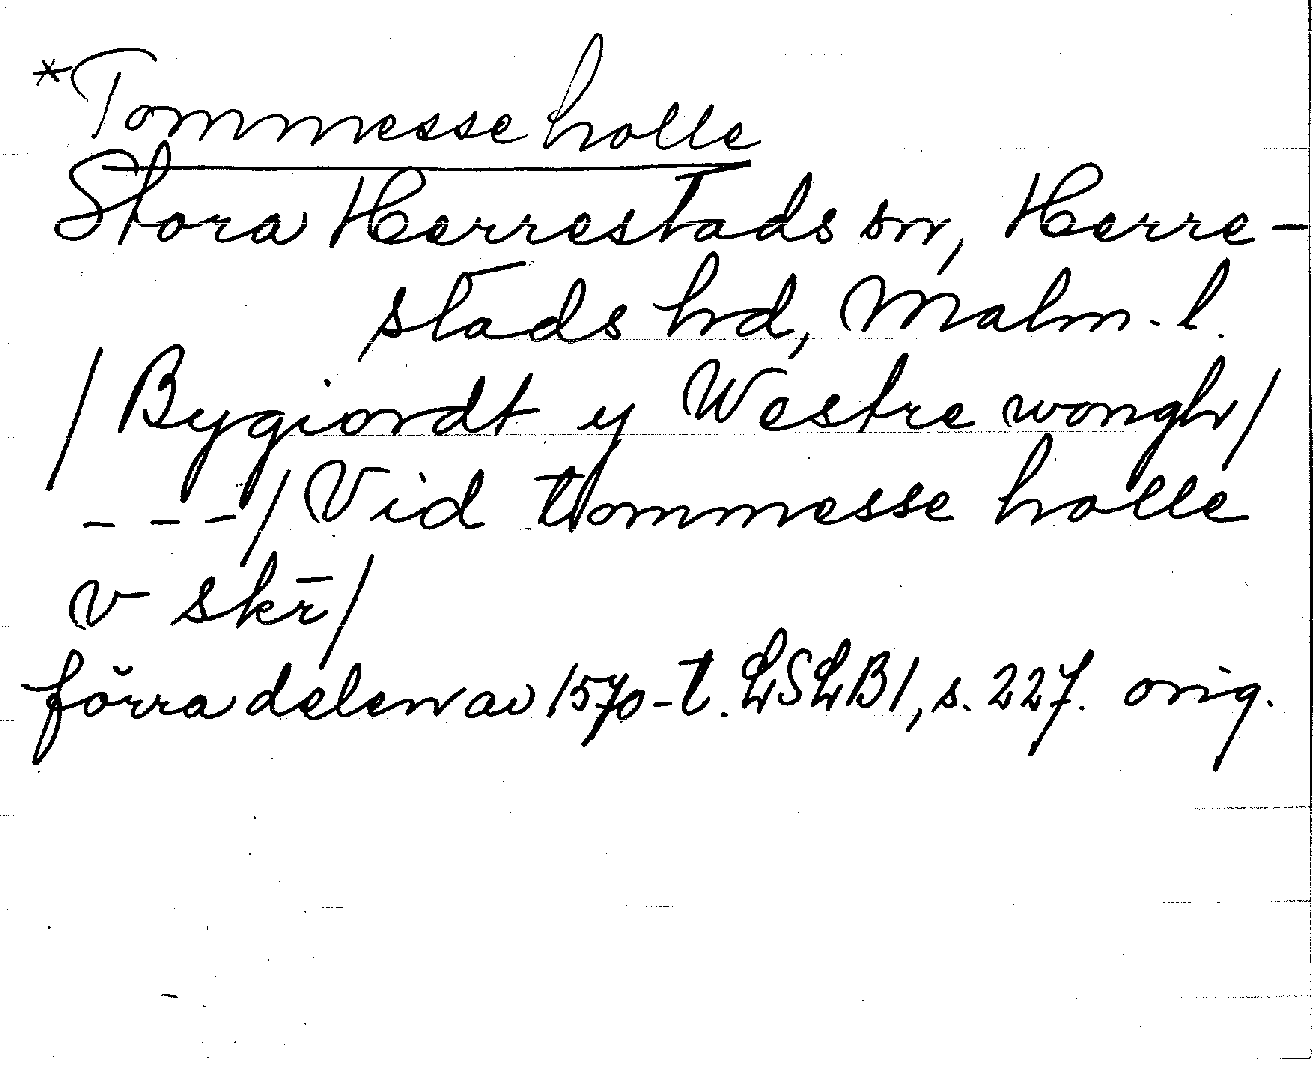 *Tommesse holle
Stora Herrestads sn, Herre-
stads hd, Malm. l.
/ Bygiordt y Westre wongh/
---/ Vid tommesse holle
v skr̄/
förra delen av 1570-t. LSLB1, s. 227. orig.